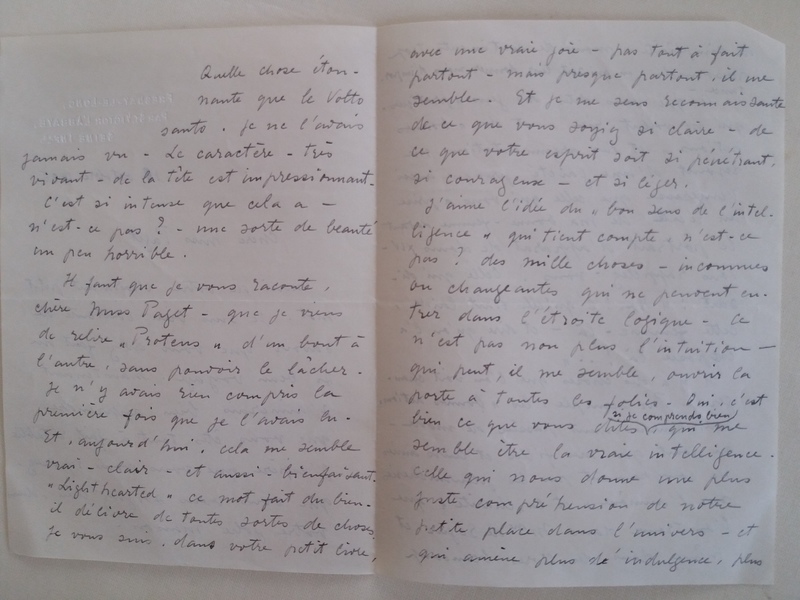 Quelle chose éton-
nante que le Volto
santo. je ne l'avais
jamais vu - Le caractère - très
vivant - de la tête est impressionnant.
C'est si intense que cela a -
n'est-ce pas ? - une sorte de beauté
un peu horrible.
Il faut que je vous raconte,
chère Miss Paget - que je viens
de relire "Proteus", d'un bout à
l'autre, sans pouvoir le lâcher.
Je n'y avais rien compris la
première fois que je l'avais lu.
Et, aujourd'hui, cela me semble
vrai - clair - et aussi - bienfaisant.
"Lighthearted" ce mot fait du bien -
il délivre de toutes sortes de choses,
je vous suis, dans votre petit livre,
avec une vraie joie - pas tout à fait
partout - mais presque partout, il me
semble. Et je me sens reconnaissante
de ce que vous soyiez si claire - de
ce que votre esprit soit si pénétrant,
si courageuse - et si léger.
J'aime l'idée du "bon sens de l'intel-
ligence" qui tient compte, n'est-ce
pas ? des mille choses - inconnues
ou changeantes qui ne peuvent en-
trer dans l'étroite logique - Ce
n'est pas non plus l'intuition -
qui peut, il me semble, ouvrir la
porte à toutes les folies - Oui, c'est
(si je comprends bien)
bien ce que vous dites, qui me
semble être la vraie intelligence.
Celle qui nous donne une plus
juste compréhension de notre
petite place dans l'univers - et
qui amène plus d'indulgence, plus